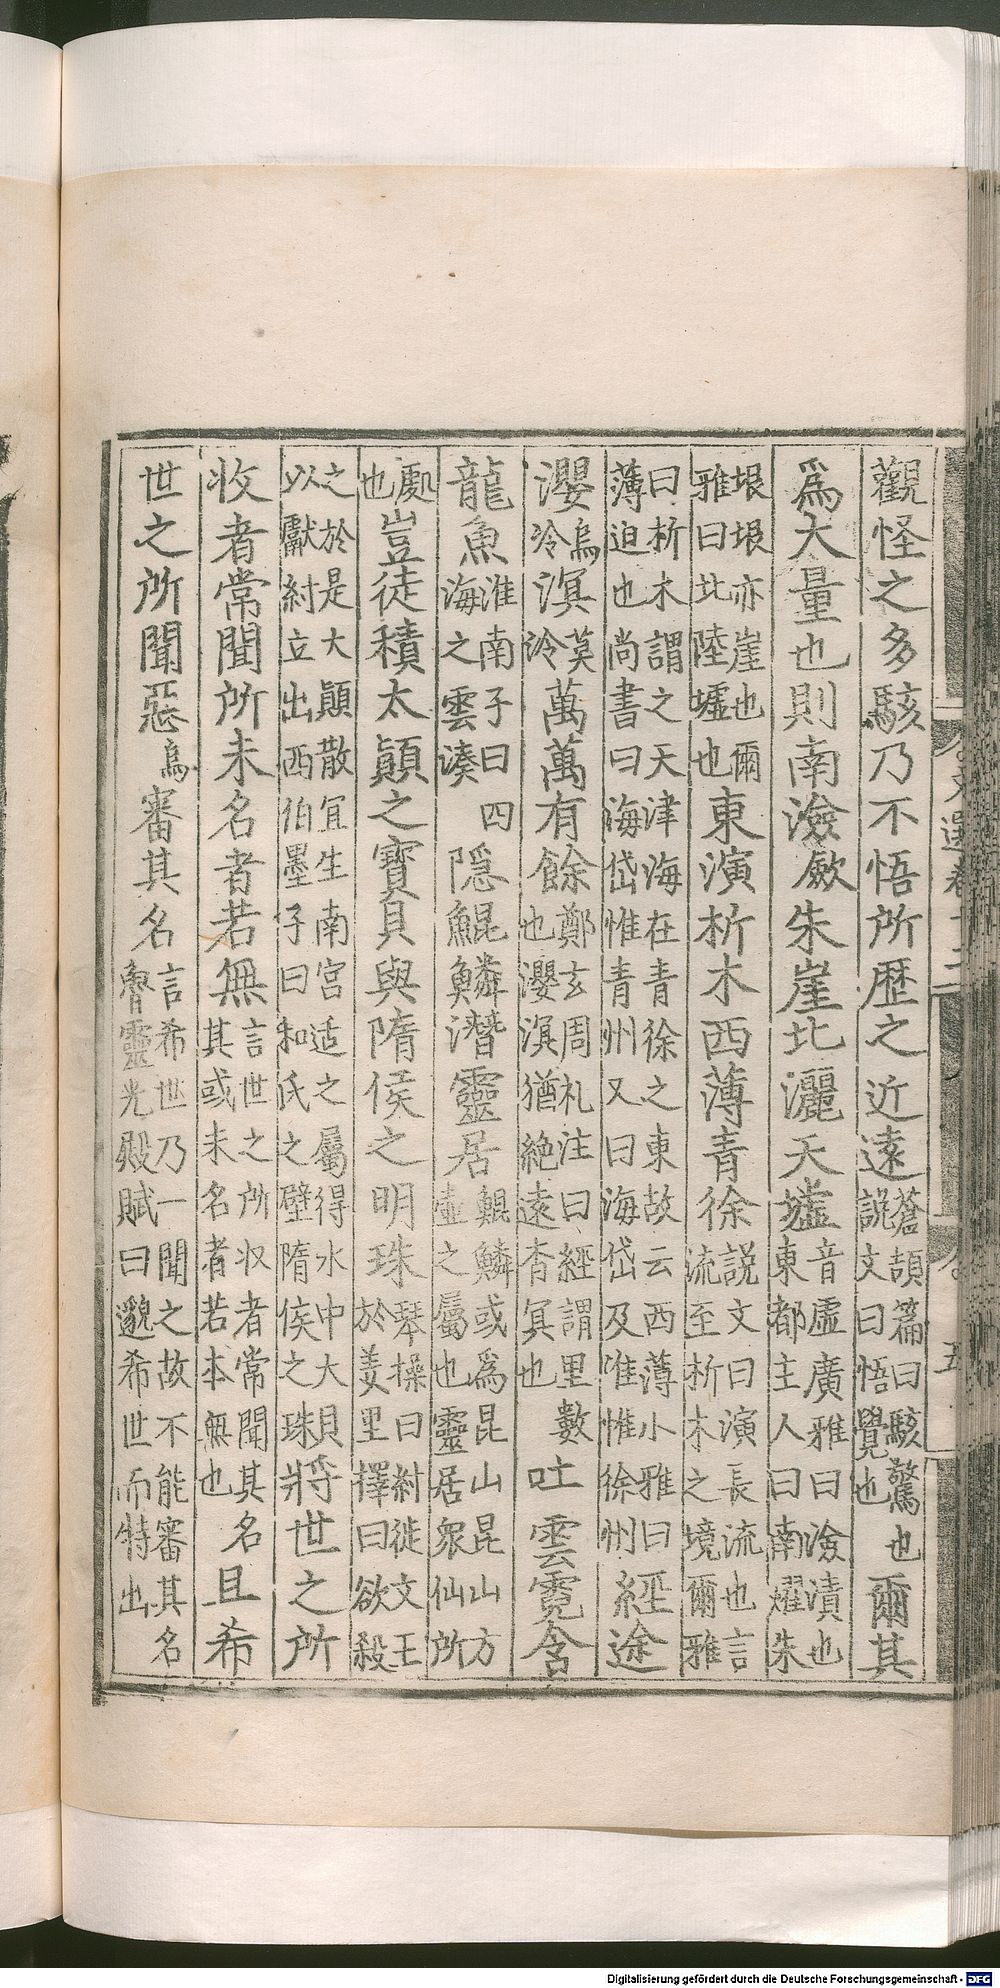 觀怪之多駭乃不悟所歷之近遠蒼頡篇曰駭驚也說文曰悟覺也爾其
爲大量也則南澰朱崖北灑天墟音虛廣雅曰澰漬也東都主人曰南燿朱
垠垠亦崖也爾雅曰北陸墟也東演析木西薄青徐說文曰演長流也言流至析木之境爾雅
曰析木謂之天津海在青徐之東故云西薄小雅曰薄迫也尚書曰海岱惟青州又曰海岱及淮惟徐州經途
瀴烏冷溟莫冷萬萬有餘鄭玄周礼注曰經謂里數也瀴溟猶絶遠杳冥也吐雲霓含
龍魚淮南子曰四海之雲湊隱鯤鱗潛靈居鯤鱗或爲昆山昆山方壷之屬也靈居衆仙所
處也豈徒積太顚之寳貝與隋侯之明珠琴操曰紂徙文王於羑里擇曰欲殺
之於是大顚散冝生南宮适之屬得水中大貝以獻紂立出西伯墨子曰和氏之璧隋侯之珠將世之所
收者常聞所未名者若無言世之所收者常聞其名其或未名者若本無也且希
世之所聞惡烏審其名言希世乃一聞之故不能審其名魯靈光殿賦曰邈希世而特出
文選卷十二
五
Digitalisierung gefördert durch die Deutsche Forschungsgemeinschaft - DFG